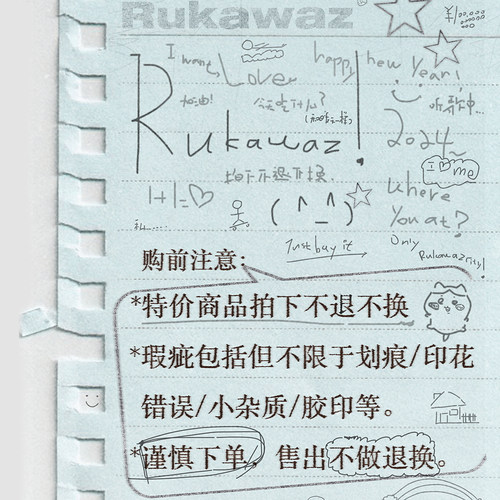 Rukawaz®
¥100,000,000
I want Love
happy new Year!
加油!
今天吃什么?
听歌中...
Rukawaz!
2024~
拍下不退不换
I ♡ me
1+1=♡
where
You at?
(^_^)
Just buy it
Only
购前注意:
*特价商品拍下不退不换
*瑕疵包括但不限于划痕/印花
错误/小杂质/胶印等。
*谨慎下单，售出不做退换。